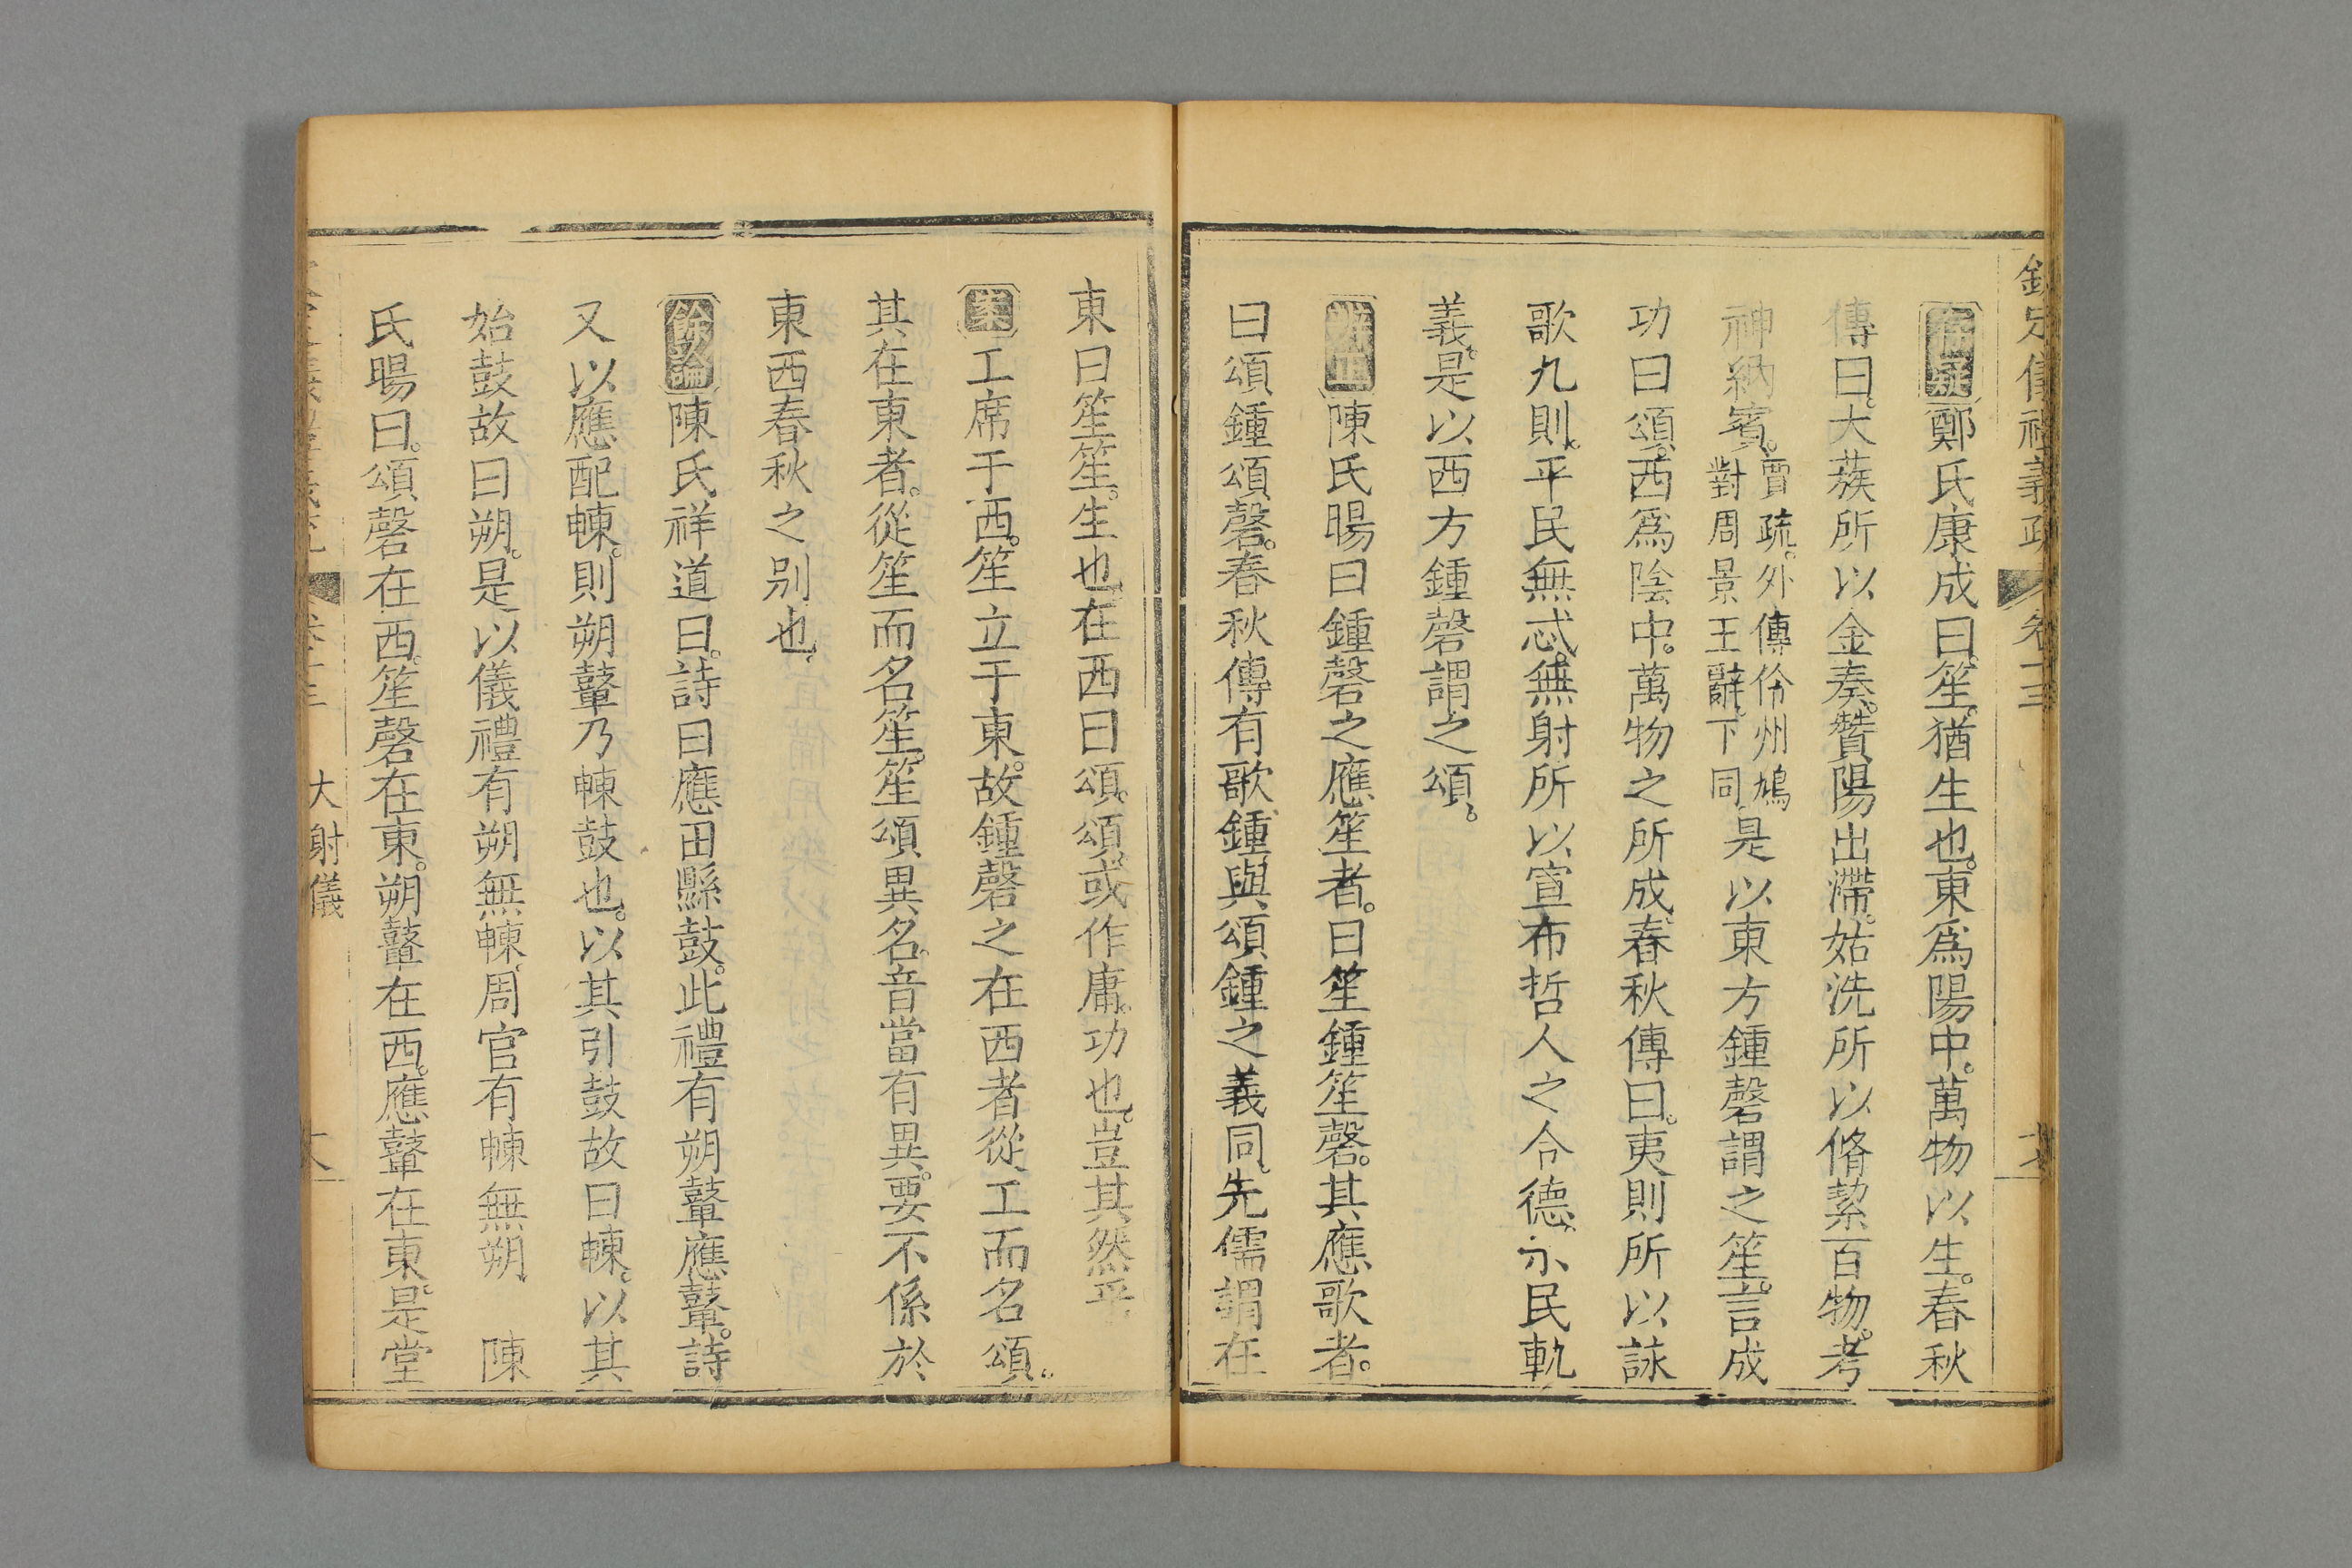 欽定儀禮義疏 卷十三
存疑鄭氏康成曰。笙。猶生也。東爲陽中。萬物以生。春秋
傳曰。大蔟所以金奏。贊陽出滯。姑洗所以脩絜百物。考
神納賓。賈疏。外傳伶州鳩對周景王辭。下同是以東方鍾磬謂之笙。言成
功曰頌。西爲陰中。萬物之所成。春秋傳曰。夷則所以詠
歌九則。平民無忒。無射所以宣布哲人之令德。示民軌
義。是以西方鍾磬謂之頌。
辨正陳氏暘曰鍾磬之應笙者。曰笙鍾笙磬。其應歌者。
曰頌鍾頌磬。春秋傳有歌鍾與頌鍾之義同。先儒謂在
東曰笙笙。生也。在西曰頌。頌或作庸。功也。豈其然乎
案工席于西。笙立于東。故鍾磬之在西者從工而名頌。
其在東者。從笙而名笙。笙頌異名。音當有異。要不係於
東西春秋之別也
餘論陳氏祥道曰。詩曰應田縣鼓。此禮有朔鼙應鼙。詩
又以應配㯥。則朔鼙乃㯥鼓也。以其引鼓故曰㯥。以其
始鼓故曰朔。是以儀禮有朔無㯥。周官有㯥無朔 陳
氏暘曰。頌磬在西。笙磬在東。朔鼙在西。應鼙在東。是堂
大射儀